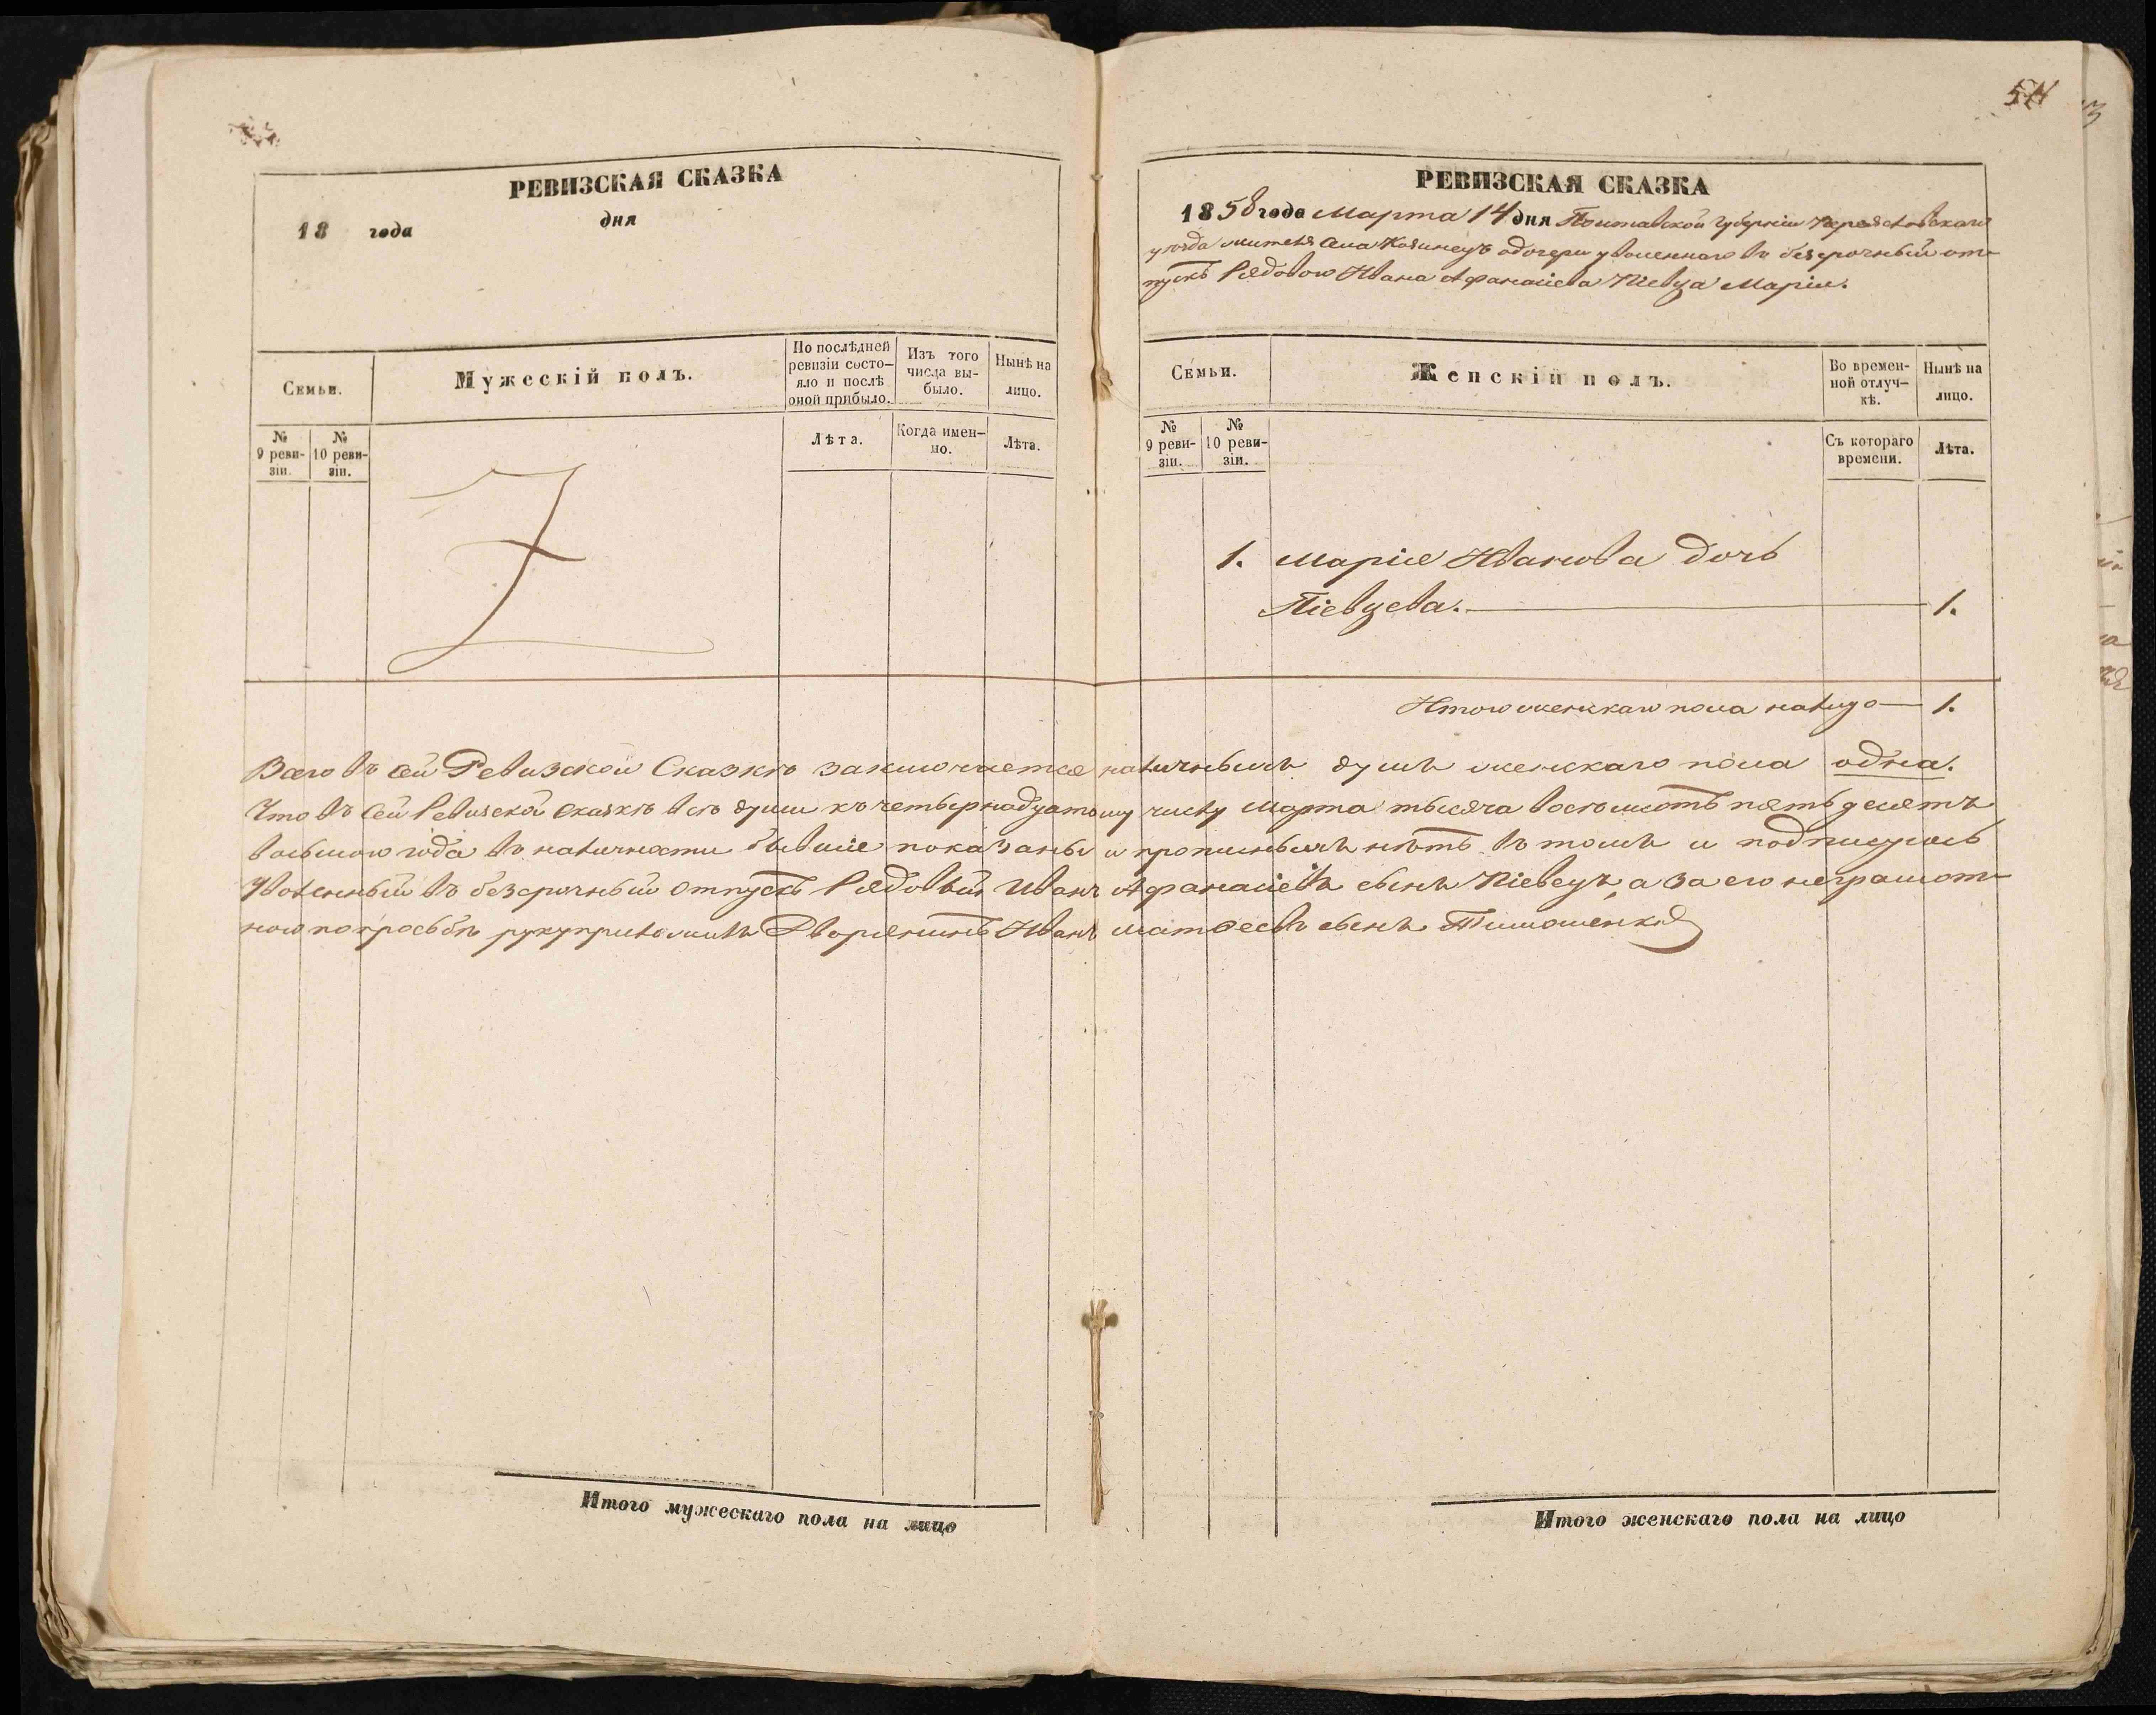 РЕВИЗСКАЯ СКАЗКА
18 года дня
Семьи.
Мужескій полъ.
По послѣдней ревизіи состо-
яло и послѣ оной прибыло.
Изъ того числа вы-
было.
Нынѣ на лицо.
№ 9 реви-
зіи.
№ 10 реви-
зіи.
Лѣта.
Когда имен-
но.
Лѣта.
54
РЕВИЗСКАЯ СКАЗКА
1858 года Марта 14 дня Полтавской Губерніи Переяславскаго
уѣзда жителя села Козинецъ о дочери уволеннаго въ безсрочный от-
пускъ Рядового Ивана Афанасіева Піевца Маріи.
Семьи.
Женскій полъ.
Во времен-
ной отлуч-
кѣ.
Нынѣ на лицо.
№ 9 реви-
зіи.
№ 10 реви-
зіи.
Съ котораго времени.
Лѣта.
1. Марія Иванова дочь
Піевцева. 1.
Итого женскаго пола налицо 1.
Всего въ сей Ревизской Сказкѣ заключается наличныхъ душъ женскаго пола одна.
Что въ сей Ревизской сказкѣ всѣ души къ четырнадцатому числу Марта тысяча восемьсотъ пятьдесятъ
восьмого года въ наличности бывшіе показаны и прописныхъ нѣтъ въ томъ и подписуюсь
Уволенный въ безсрочный отпускъ Рядовый Иванъ Афанасіевъ сынъ Піевецъ, а за его неграмот-
ного по просьбѣ рукуприложилъ Дворянинъ Иванъ Матвеевъ сынъ Тимошенко
Итого мужескаго пола на лицо
Итого женскаго пола на лицо